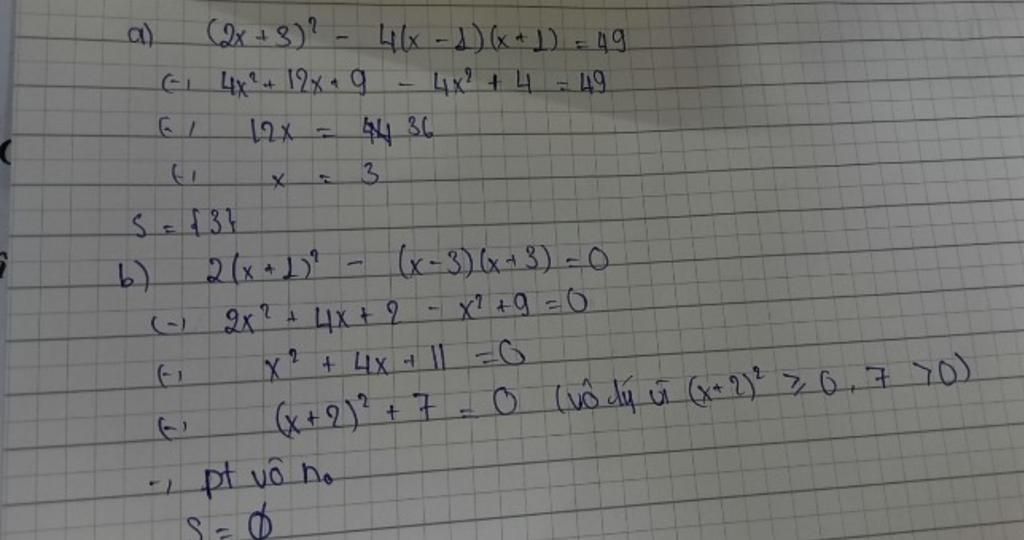 a) (2x + 3)² - 4(x - 1)(x + 1) = 49
(-) 4x² + 12x + 9 - 4x² + 4 = 49
(-) 12x = 36
(-) x = 3
S = {3}
b) 2(x + 1)² - (x - 3)(x + 3) = 0
(-) 2x² + 4x + 2 - x² + 9 = 0
(-) x² + 4x + 11 = 0
(-) (x + 2)² + 7 = 0 (vô lý vì (x + 2)² ≥ 0, 7 > 0)
-, pt vô no
S = ∅